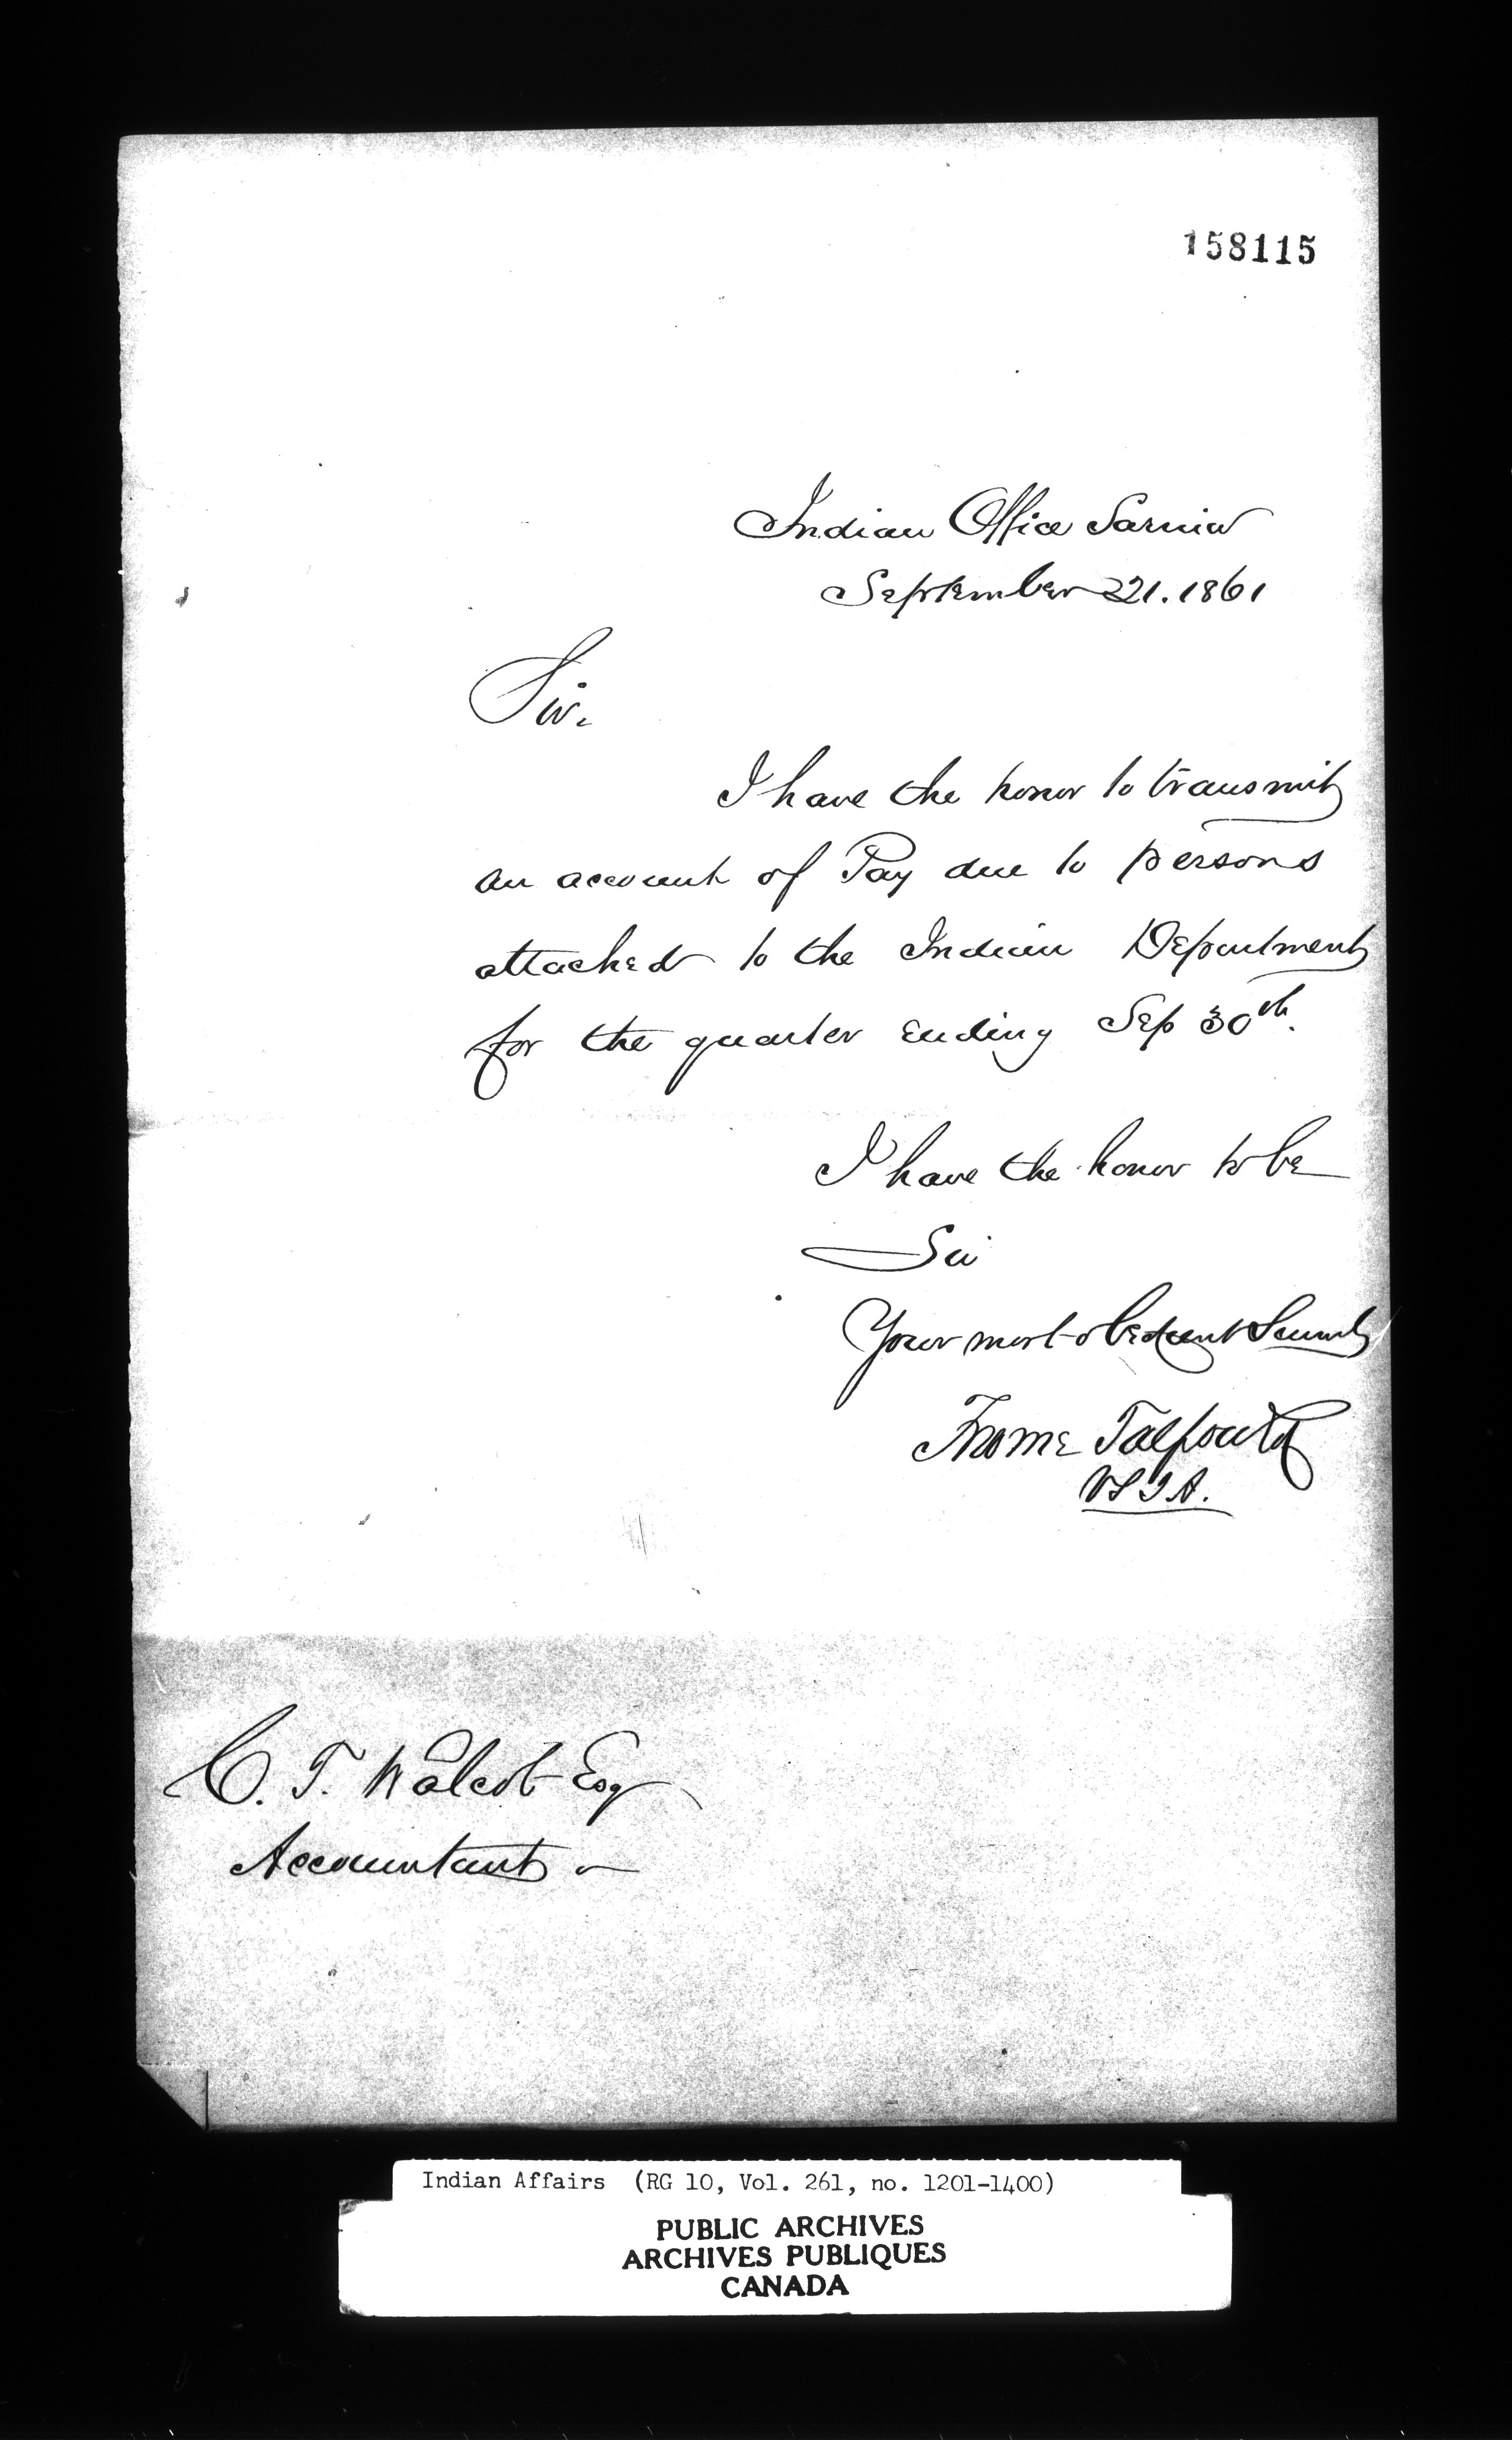 158115
Indian Office Sarnia
September 21. 1861
Sir.
I have the honor to transmit
an account of Pay due to persons
attached to the Indian Department
for the quarter ending Sep 30th.
I have the honor to be
Sir
Your most obedient Servant
Froome Talfourd
VSIA.
C. T. Walcot Esq
Accountant
Indian Affairs (RG 10, Vol. 261, no. 1201-1400)
PUBLIC ARCHIVES
ARCHIVES PUBLIQUES
CANADA